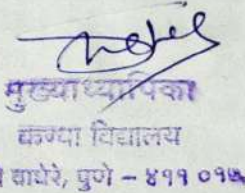 मुख्याध्यापिका
कन्या विद्यालय
वाघेरे, पुणे - ४११ ०१७